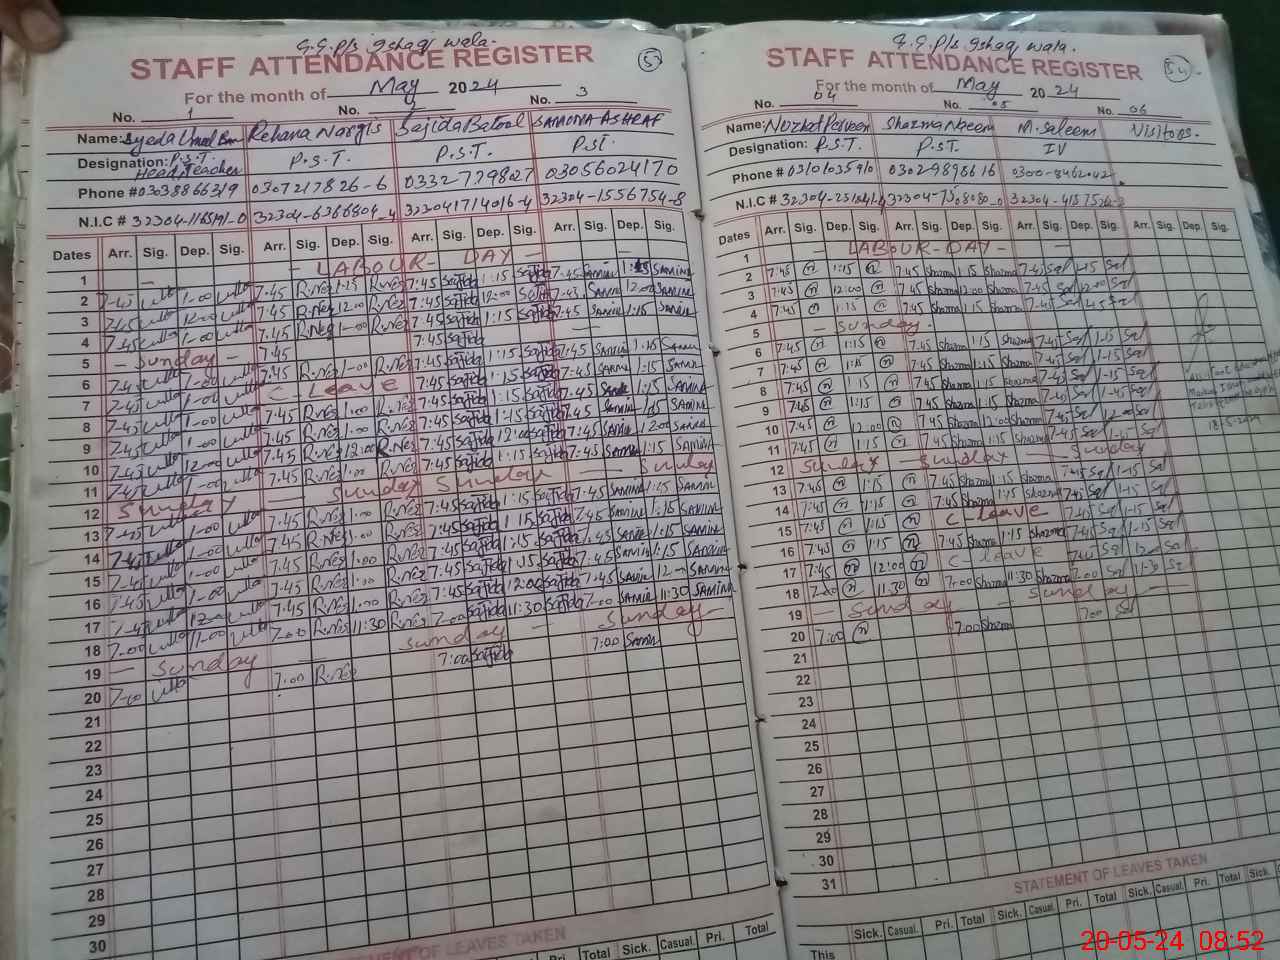 G.G.P/S Ishaq wala.
STAFF ATTENDANCE REGISTER
For the month of May 2024
No. 1 No. 2 No. 3
Name: Syeda Rehana Nargis Sajida Batool SAMINA ASHRAF
Designation: P.S.T. Head Teacher P.S.T. P.S.T. P.ST.
Phone # 03038866319 0307217826-6 0332-7779827 03056024170
N.I.C # 32304-6366804-4 32304-1556754-8
Dates Arr. Sig. Dep. Sig. Arr. Sig. Dep. Sig. Arr. Sig. Dep. Sig. Arr. Sig. Dep. Sig.
1 LABOUR - DAY -
2 7-45 1-00 7.45 R.Nez 1.15 R.Nez 7:45 Sajida 1:15 Sajida 7.45 SAMINA 1:15 SAMINA
3 7.45 12.00 7.45 R.Nez 12.00 R.Nez 7:45 Sajida 12:00 7.45 SAMINA 12.00 SAMINA
4 7-45 1-00 7.45 R.Nez 1-00 R.Nez 7:45 Sajida 1:15 Sajida 7.45 SAMINA 1:15 SAMINA
5 - Sunday - 7:45 7:45 Sajida
6 7-45 1-00 7.45 R.Nez 1-00 R.Nez 7:45 Sajida 1:15 Sajida 7.45 SAMINA 1:15 SAMINA
7 7-45 1-00 C-Leave 7:45 Sajida 1:15 Sajida 7:45 SAMINA 1:15 SAMINA
8 7-45 1-00 7.45 R.Nez 1.00 R.Nez 7:45 Sajida 1:15 Sajida 7:45 1:15 SAMINA
9 7-45 1-00 7.45 R.Nez 1.00 R.Nez 7:45 Sajida 1:15 Sajida 7:45 SAMINA 1:15 SAMINA
10 7-45 12-00 7.45 R.Nez 12.00 R.Nez 7:45 Sajida 12:00 Sajida 7:45 SAMINA 12:00 SAMINA
11 7-45 1-00 7.45 R.Nez 1.00 R.Nez 7:45 Sajida 1:15 Sajida 7:45 SAMINA 1:15 SAMINA
12 Sunday - Sunday Sunday - Sunday
13 7-45 1-00 7.45 R.Nez 1.00 R.Nez 7:45 Sajida 1:15 Sajida 7:45 SAMINA 1:15 SAMINA
14 7-45 1-00 7.45 R.Nez 1.00 R.Nez 7:45 Sajida 1:15 Sajida 7:45 SAMINA 1:15 SAMINA
15 7-45 1-00 7.45 R.Nez 1.00 R.Nez 7:45 Sajida 1:15 Sajida 7:45 SAMINA 1:15 SAMINA
16 7-45 1-00 7.45 R.Nez 1.00 R.Nez 7:45 Sajida 1:15 Sajida 7:45 SAMINA 1:15 SAMINA
17 7-45 12.00 7.45 R.Nez R.Nez 7:45 Sajida 12:00 Sajida 7:45 SAMINA 12- SAMINA
18 7-00 7.00 R.Nez 11:30 R.Nez 7:00 Sajida 11:30 Sajida 7:00 SAMINA 11:30 SAMINA
19 - Sunday - Sunday - Sunday
20 7-00 7.00 R.Nez 7:00 Sajida 7:00 SAMINA
21
22
23
24
25
26
27
28
29
30
STATEMENT OF LEAVES TAKEN
Total Sick. Casual. Pri. Total
G.G.P/S Ishaq wala.
STAFF ATTENDANCE REGISTER 54
For the month of May 2024
No. 04 No. 05 No. 06
Name: Nuzhat Perveen Shazma Naeem M. Saleem Visitors.
Designation: P.S.T. P.ST. IV
Phone # 03101035910 0302-9898616 0300-8462042
N.I.C #
Dates Arr. Sig. Dep. Sig. Arr. Sig. Dep. Sig. Arr. Sig. Dep. Sig. Arr. Sig. Dep. Sig.
1 - LABOUR - DAY -
2 7:45 n 1:15 n 7.45 Shazma 1:15 Shazma 7-45 Sal 1-15 Sal
3 7:45 n 12:00 n 7.45 Shazma 12:00 Shazma 7-45 Sal 12-00 Sal
4 7:45 n 1:15 n 7.45 Shazma 1:15 Shazma 7-45 Sal Sal
5 - Sunday.
6 7:45 n 1:15 n 7.45 Shazma 1:15 Shazma 7-45 Sal 1-15 Sal
7 7:45 n 1:15 n 7.45 Shazma 1:15 Shazma 7-45 Sal 1-15 Sal
8 7:45 n 1:15 n 7.45 Shazma 1:15 Shazma 7-45 Sal 1-15 Sal
9 7:45 n 1:15 n 7.45 Shazma 1:15 Shazma 7-45 Sal 1-45 Sal
10 7:45 n 12:00 n 7.45 Shazma 12:00 Shazma 7-45 Sal 12-00 Sal
11 7:45 n 1:15 n 7.45 Shazma 1:15 Shazma 7-45 Sal 1-15 Sal
12 Sunday - Sunday - Sunday
13 7:45 n 1:15 n 7.45 Shazma 1:15 Shazma 7-45 Sal 1-15 Sal
14 7:45 n 1:15 n 7.45 Shazma 1:15 Shazma 7-45 Sal 1-15 Sal
15 7:45 n 1:15 n C-Leave 7-45 Sal 1-15 Sal
16 7:45 n 1:15 n 7.45 Shazma 1:15 Shazma 7-45 Sal 1-15 Sal
17 7:45 n 12:00 n C-leave 7-45 Sal 12-00 Sal
18 7:00 n 11:30 n 7:00 Shazma 11:30 Shazma 7-00 Sal 11-30 Sal
19 - Sunday - Sunday -
20 7:00 n 7:00 Shazma 7:00 Sal
21
22
23
24
25
26
27
28
29
30
31
18-5-2024
STATEMENT OF LEAVES TAKEN
Sick. Casual. Pri. Total Sick. Casual. Pri. Total Sick. Casual. Pri. Total Sick.
This
20-05-24 08:52